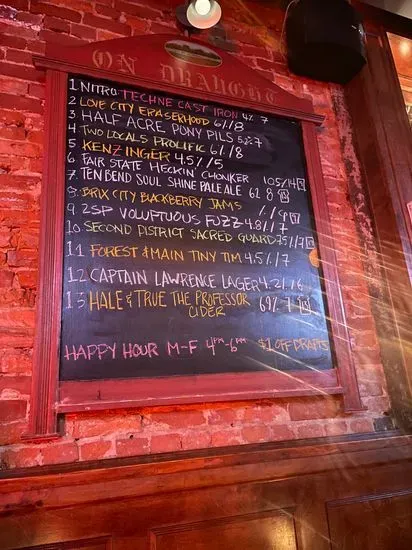 ON DRAUGHT
1 NITRO: TECHNE CAST IRON 4% 7
2 LOVE CITY ERASERHOOD 6% 8
3 HALF ACRE PONY PILS 5% 7
4 TWO LOCALS PROLIFIC 6% 8
5 KENZINGER 4.5% 5
6 FAIR STATE HECKIN' CHONKER 10.5% 14
7 TEN BEND SOUL SHINE PALE ALE 6% 8
8 BRIX CITY BLACKBERRY JAMS
9 2SP VOLUPTUOUS FUZZ 4.8% 7
10 SECOND DISTRICT SACRED GUARD 7.5% 7
11 FOREST & MAIN TINY TIM 4.5% 7
12 CAPTAIN LAWRENCE LAGER 4.2% 6
13 HALE & TRUE THE PROFESSOR 6.9% 7
CIDER
HAPPY HOUR M-F 4PM-6PM $1 OFF DRAFTS